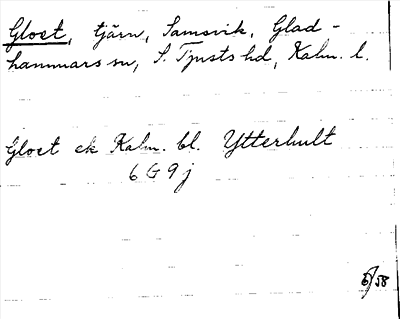 Glost, tjärn, Samsvik, Glad-
hammars sn, S. Tjusts hd, Kalm. l.
Glost ek Kalm. bl. Ytterhult
6 G 9 j
/58